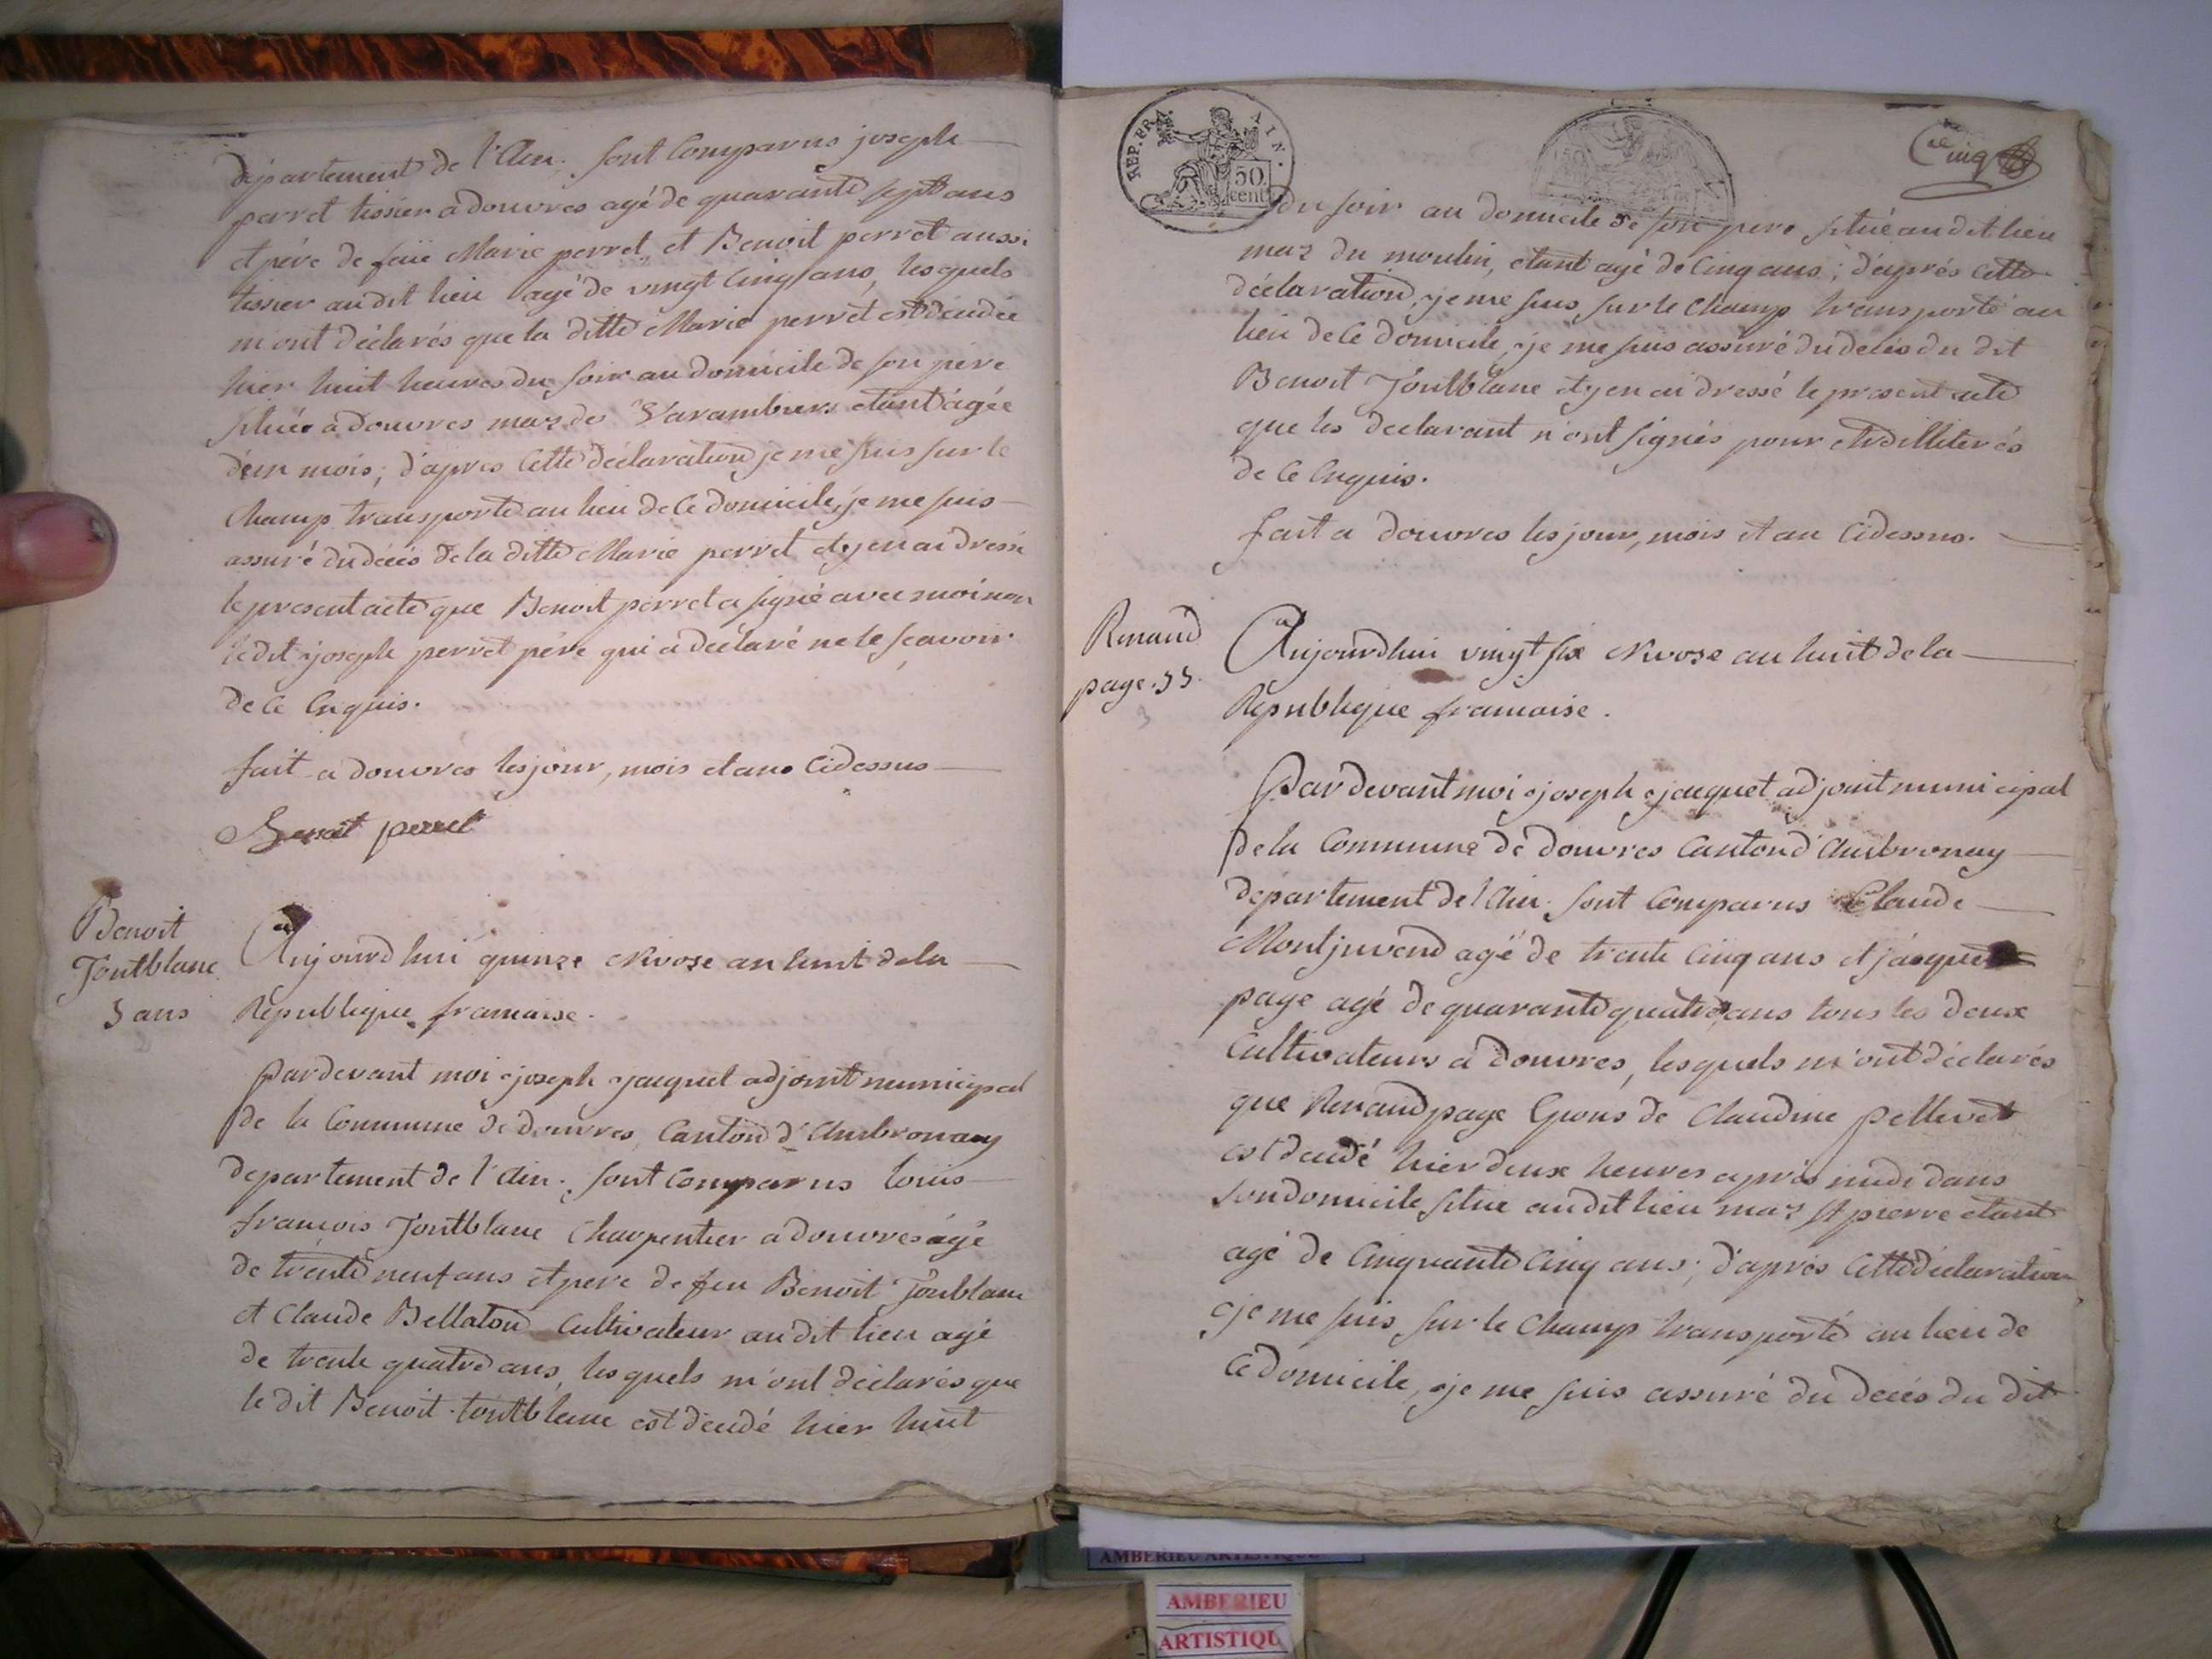 département de l'Ain. sont Comparus joseph
perret tissier a douvres agé de quarante sept ans
et père de feüe Marie perret, et Benoit perret aussi
tissier audit lieu agé de vingt Cinq ans, lesquels
m'ont déclarés que la ditte Marie perret est décédée
hier huit heures du soir au domicile de son père
situé a douvres mas de Varambiers etant âgée
d'un mois; d'après Cette déclaration je me suis sur le
Champ transporté au lieu de Ce domicile, je me suis
assuré du décés de la ditte Marie perret et j'en ai dressé
le present acte que Benoit perret a signé avec moi non
le dit joseph perret père qui a déclaré ne le sçavoir
de Ce Enquis.
fait a douvres les jour, mois et ans Cidessus
Benoit perret
Benoit
Tontblanc
5 ans
Aujourdhui quinze Nivose an huit de la
République francaise.
Pardevant moi joseph jacquet adjoint municipal
de la Commune de douvres, Canton d'Ambronay
departement de l'Ain. sont Comparus Louis
francois Tontblanc Charpentier a douvres âgé
de trente neuf ans et pere de feu Benoit Tonblanc
et Claude Bellaton Cultivateur audit lieu agé
de trente quatre ans, lesquels m'ont déclarés que
le dit Benoit tontblanc est décédé hier huit
REP. FRA. AIN.
50
cent
Cinq
du soir au domicile de son pere situé audit lieu
mas du moulin, etant agé de Cinq ans; d'après Cette
déclaration, je me suis sur le Champ transporté au
lieu de Ce domicile, je me suis assuré du decés du dit
Benoit Tontblanc et j'en ai dressé le present acte
que les declarant n'ont signés pour etre illiterés
de Ce Enquis.
fait a douvres les jour, mois et an Cidessus.
Renaud
page. 55.
3
Aujourdhui vingt six Nivose an huit de la
République francaise.
Pardevant moi joseph jacquet adjoint municipal
de la Commune de douvres Canton d'Ambronay
département de l'Ain. sont Comparus Claude
Montjuvend agé de trente Cinq ans et jacques
page agé de quarante quatre ans tous les deux
Cultivateurs a douvres, lesquels m'ont déclarés
que Renaud page Epous de Claudine Pellevet
est décédé hier deux heures après midi dans
son domicile situé audit lieu mas St pierre etant
agé de Cinquante Cinq ans; d'après Cette déclaration
je me suis sur le Champ transporté au lieu de
Ce domicile, je me suis assuré du decés du dit
AMBERIEU ARTISTIQUE
AMBERIEU
ARTISTIQU